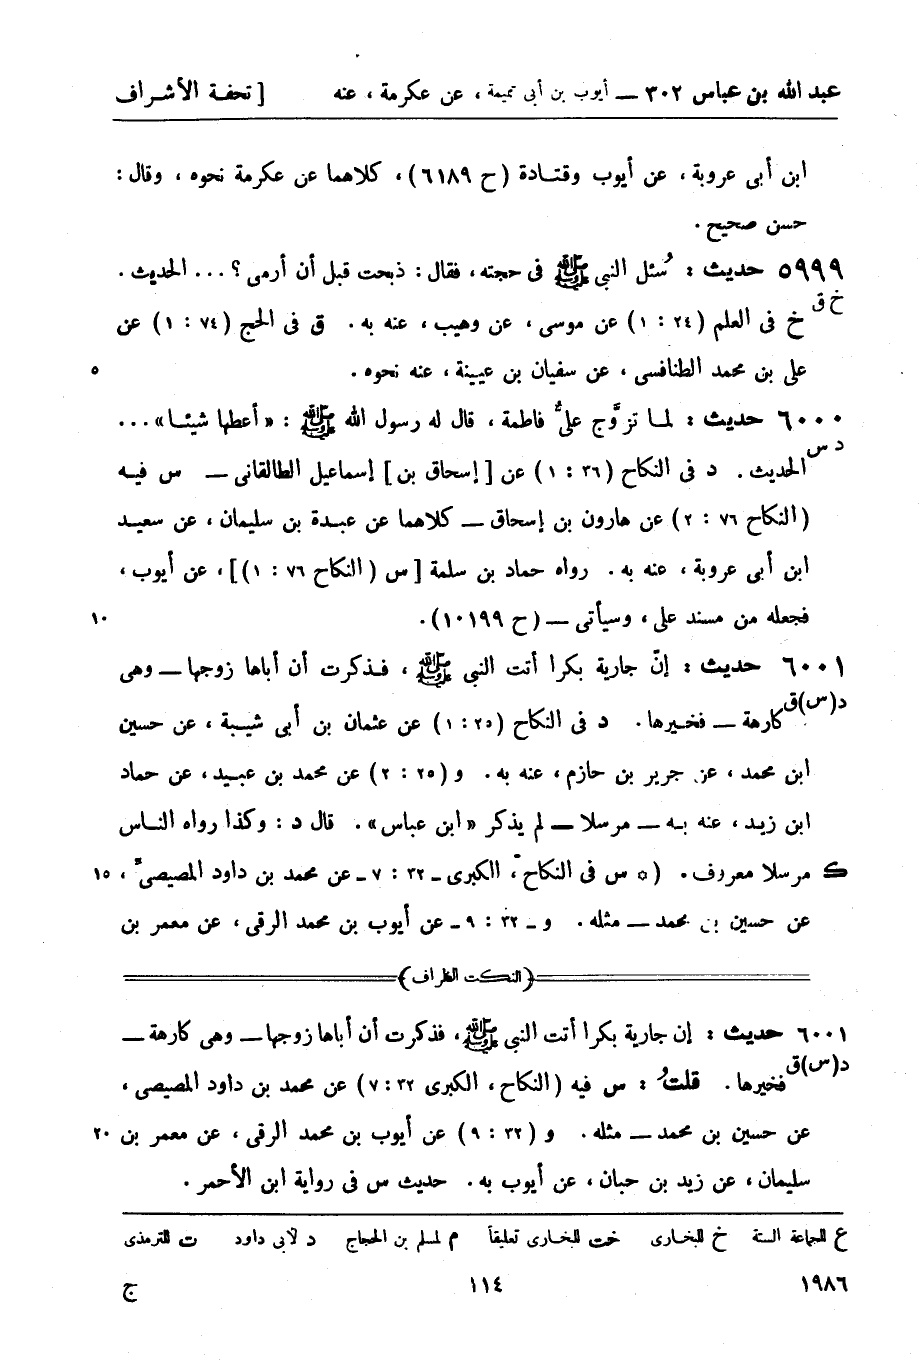 عبد الله بن عباس ٣٠٢ ــ أيوب بن أبى تميمة ، عن عكرمة ، عنه [ تحفة الأشراف
ابن أبى عروبة ، عن أيوب وقتـادة (ح ٦١٨٩) ، كلاهما عن عكرمة نحوه ، وقال :
حسن صحيح .
٥٩٩٩ حديث : سُئل النبى ﷺ فى حجته ، فقال : ذبحت قبل أن أرمى ؟ ... الحديث .
خ ق
خ فى العلم (٢٤ : ١) عن موسى ، عن وهيب ، عنه به . ق فى الحج (٧٤ : ١) عن
على بن محمد الطنافسى ، عن سفيان بن عيينة ، عنه نحوه . ٥
٦٠٠٠ حديث : لمـا تزوَّج علىٌّ فاطمة ، قال له رسول الله ﷺ : «أعطها شيئـا» ...
د س
الحديث . د فى النكاح (٣٦ : ١) عن [ إسحاق بن ] إسماعيل الطالقانى ــ س فيـه
(النكاح ٧٦ : ٢) عن هارون بن إسحاق ــ كلاهما عن عبدة بن سليمان ، عن سعيـد
ابن أبى عروبة ، عنه به . رواه حماد بن سلمة [ س ( النكاح ٧٦ : ١) ] ، عن أيوب ،
فجعله من مسند على ، وسيأتى ــ (ح ١٠١٩٩) . ١٠
٦٠٠١ حديث : إنّ جارية بكرا أتت النبى ﷺ ، فـذكرت أن أباها زوجها ــ وهى
د(س)ق
كارهة ــ فخيرها . د فى النكاح (٢٥ : ١) عن عثمان بن أبى شيـبة ، عن حسين
ابن محمد ، عن جرير بن حازم ، عنه به . و (٢٥ : ٢) عن محمد بن عبيـد ، عن حماد
ابن زيـد ، عنه بـه ــ مرسلا ــ لم يذكر «ابن عباس» . قال د : وكذا رواه النـاس
ك مرسلا معروف . (* س فى النكاح ، الكبرى ـ ٣٢ : ٧ ـ عن محمد بن داود المصيصى ، ١٥
عن حسين بن محمد ــ مثله . و ـ ٣٢ : ٩ ـ عن أيوب بن محمد الرقى ، عن معمر بن
(النكت الظراف)
٦٠٠١ حديث : إن جارية بكرا أتت النبى ﷺ ، فذكرت أن أباها زوجها ــ وهى كارهة ــ
د(س)ق
فخيرها . قلتُ : س فيه (النكاح ، الكبرى ٣٢ : ٧) عن محمد بن داود المصيصى ،
عن حسين بن محمد ــ مثله . و (٣٢ : ٩) عن أيوب بن محمد الرقى ، عن معمر بن ٢٠
سليمان ، عن زيد بن حبان ، عن أيوب به . حديث س فى رواية ابن الأحمر .
ع للجماعة الستة خ للبخارى خت للبخارى تعليقاً م لمسلم بن الحجاج د لأبى داود ت للترمذى
١٩٨٦ ١١٤ ج